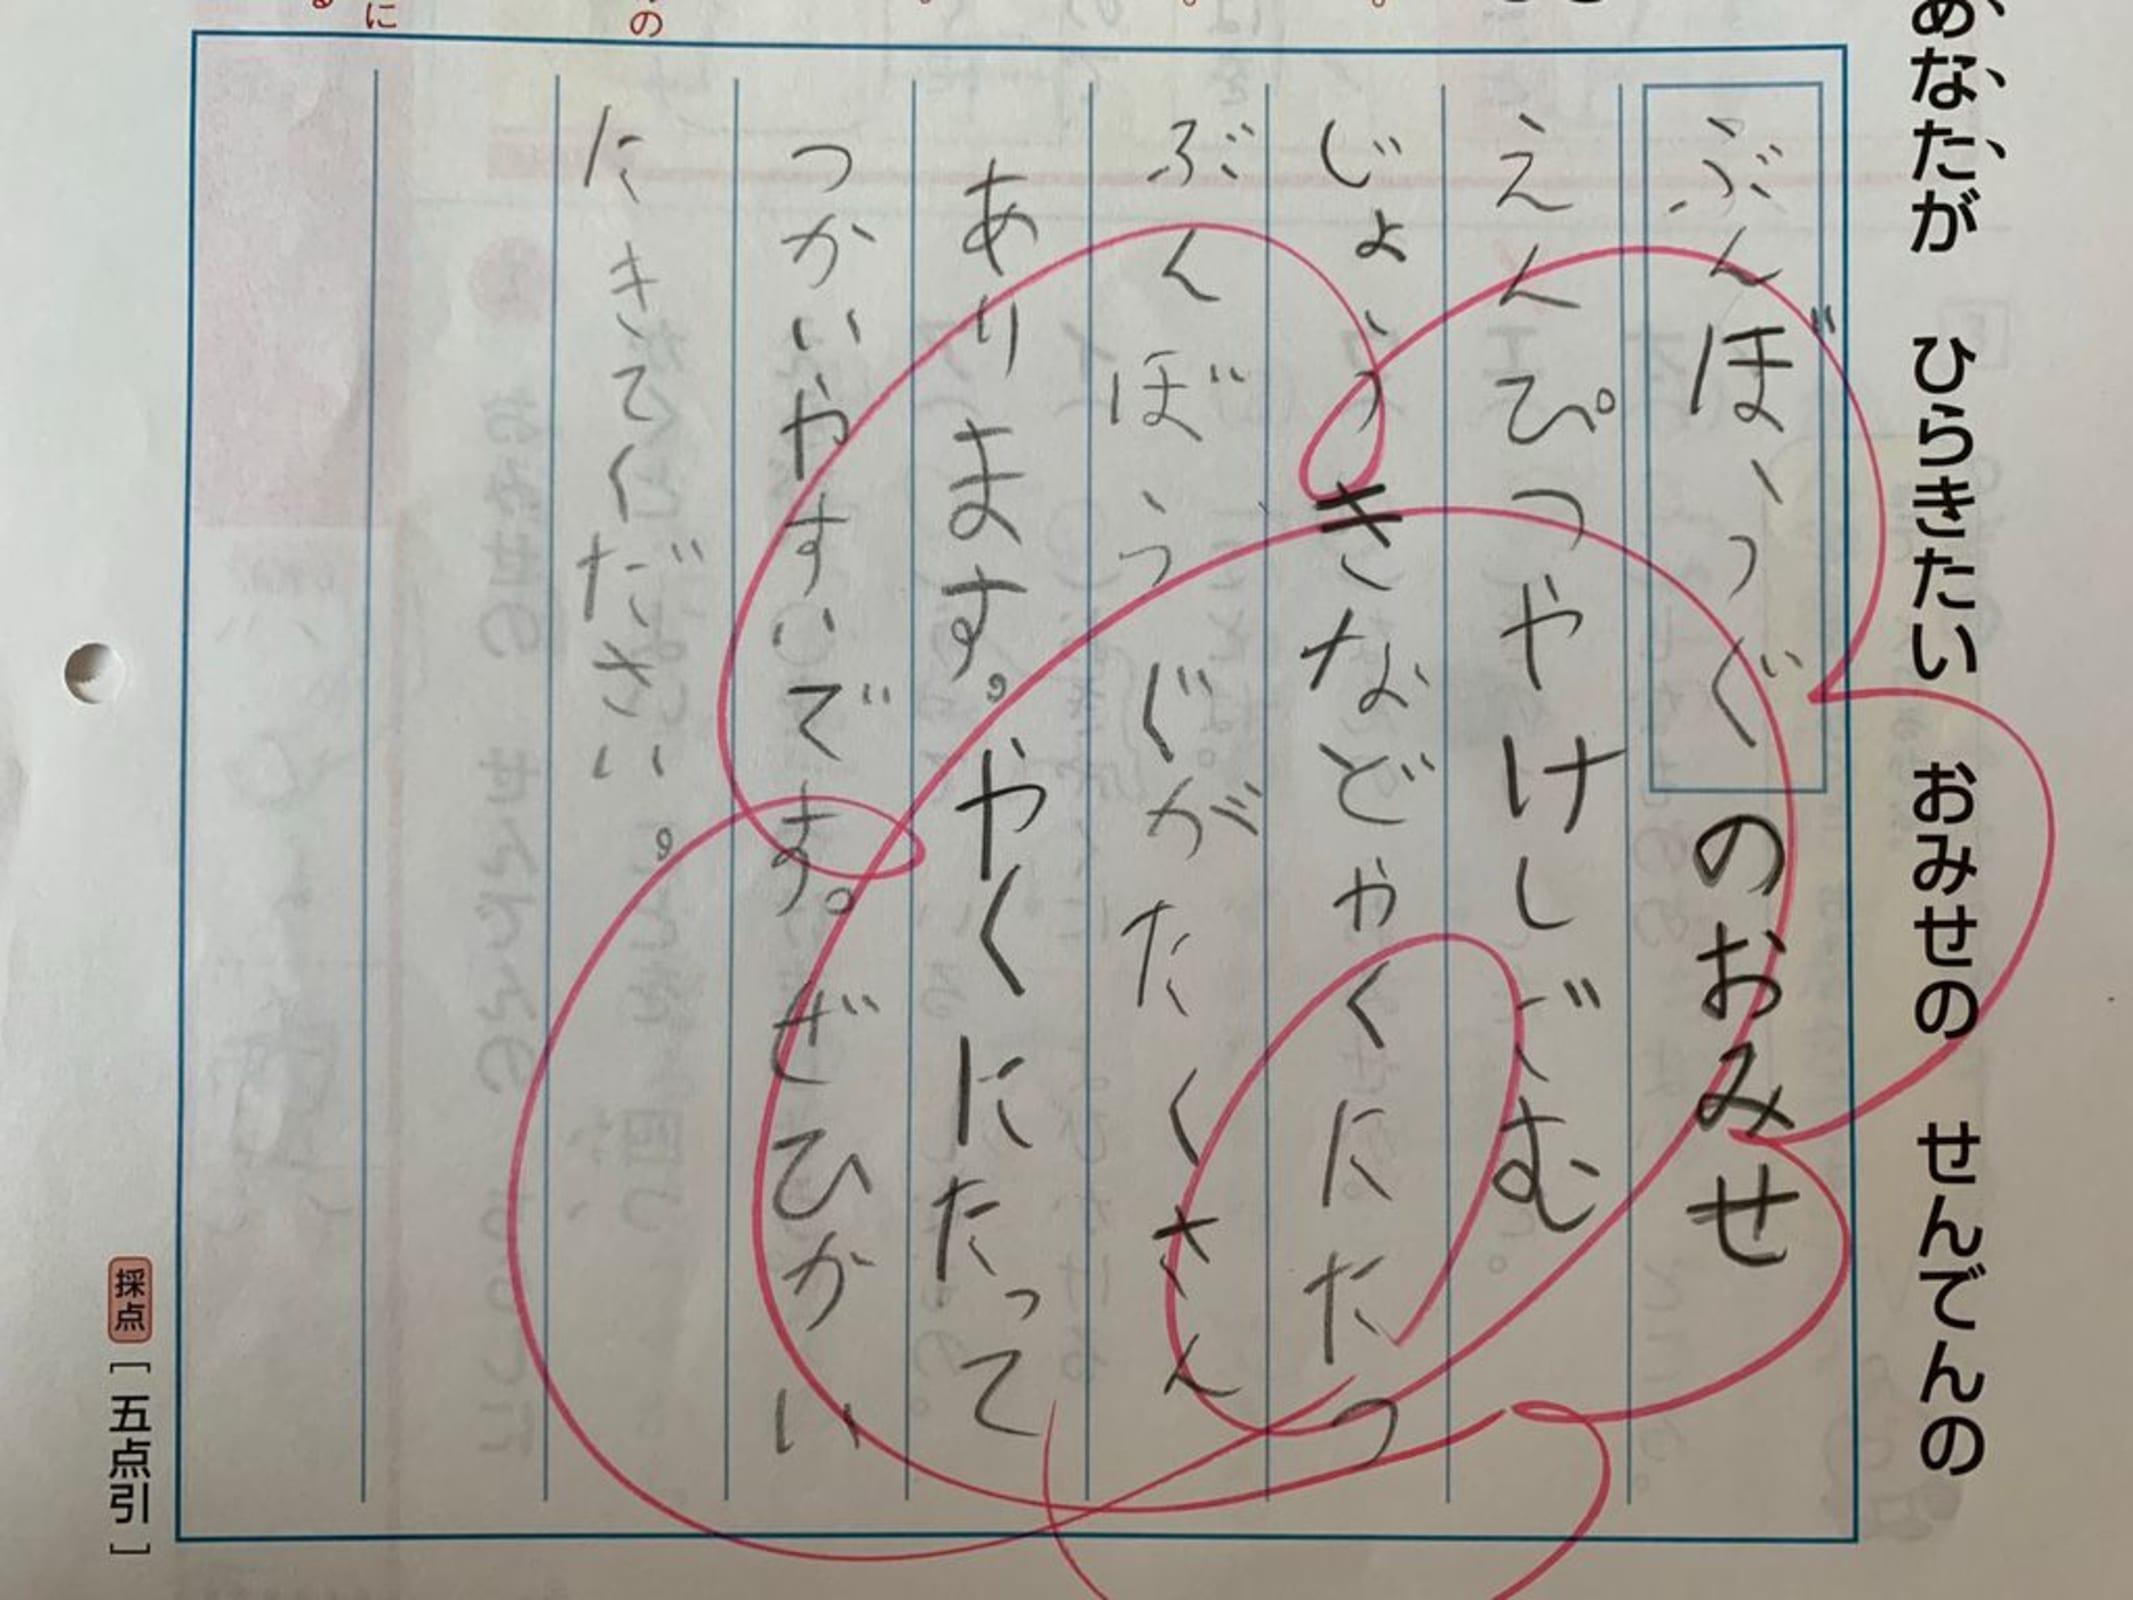 あなたが ひらきたい おみせの せんでんの
ぶんぼうぐのおみせ
えんぴつやけしごむ
じょうきなどやくにたつ
ぶんぼうぐがたくさん
あります。やくにたって
つかいやすいです。ぜひかい
にきてください。
の
に
る
採点[五点引]